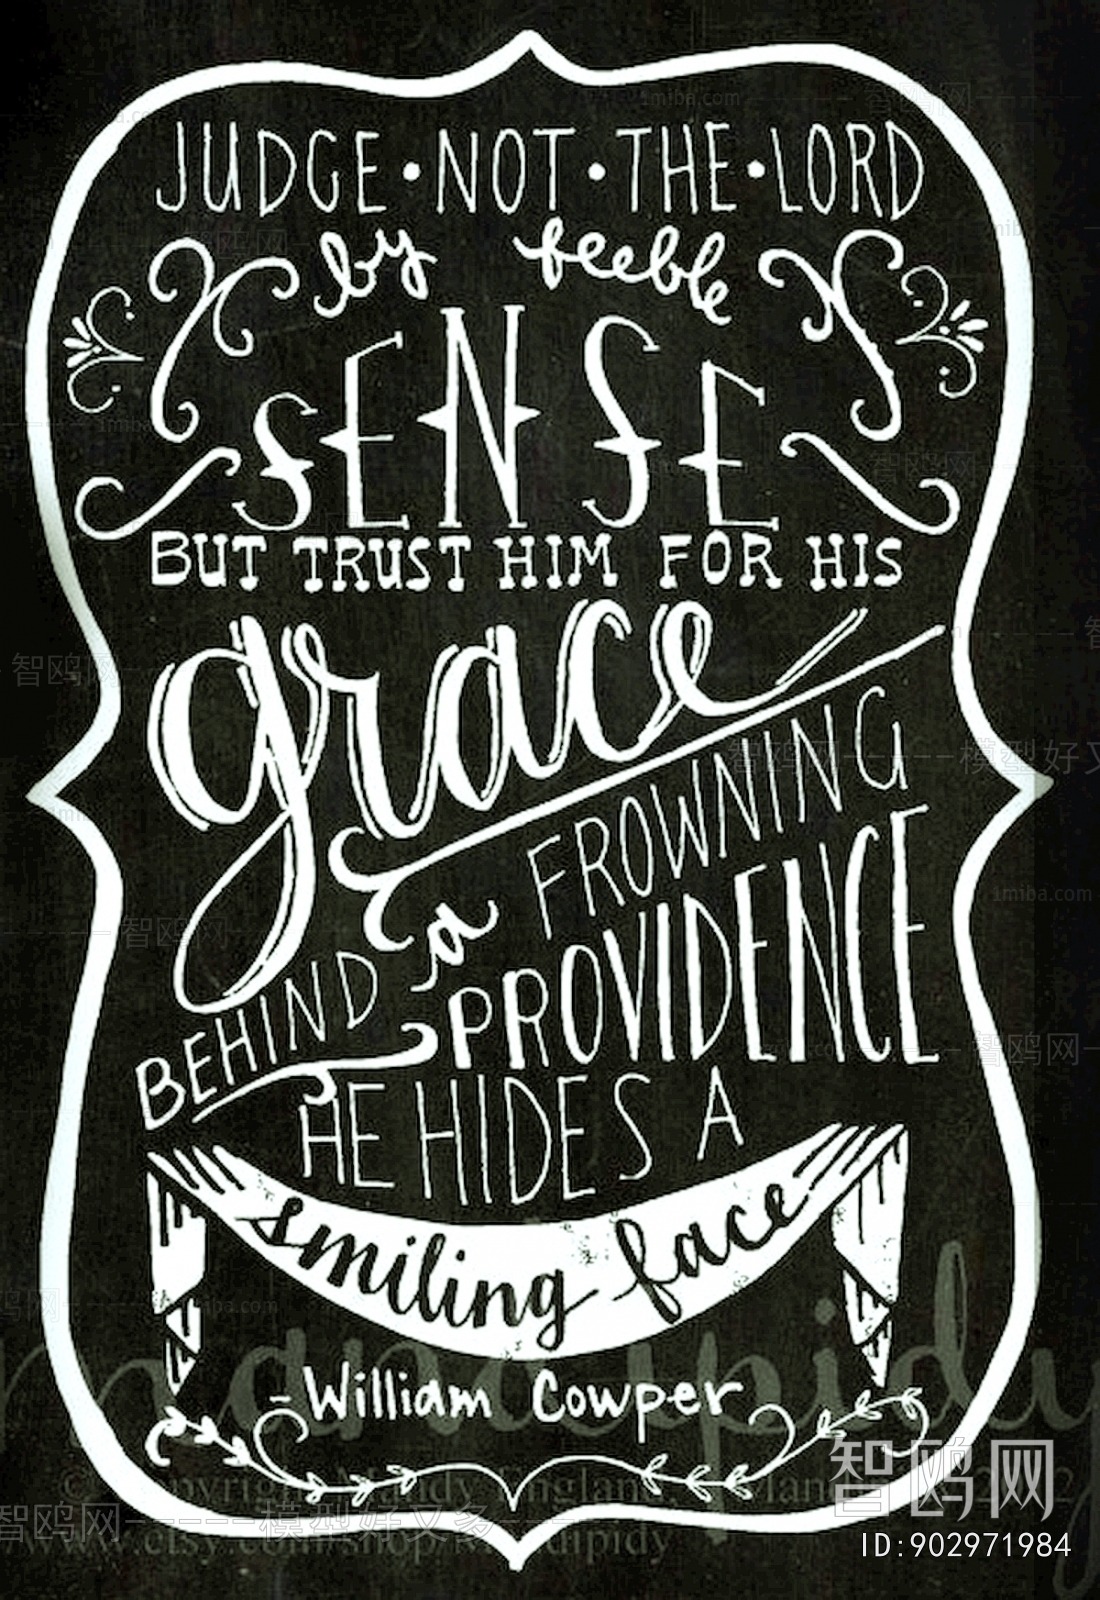 JUDGE • NOT • THE • LORD
by feeble
SENSE
BUT TRUST HIM FOR HIS
grace
BEHIND a FROWNING
PROVIDENCE
HE HIDES A
smiling face
-William Cowper
智鸥网
ID:902971984